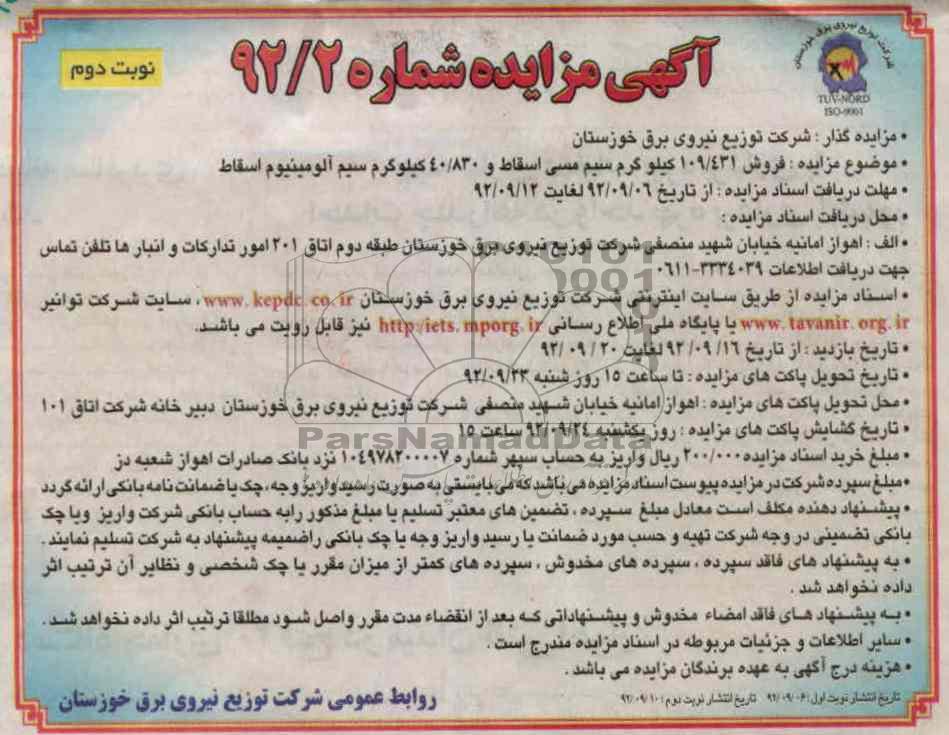 شرکت توزیع نیروی برق خوزستان
TUV-NORD
ISO-9001
آگهی مزایده شماره ۹۲/۲
نوبت دوم
• مزایده گذار : شرکت توزیع نیروی برق خوزستان
• موضوع مزایده : فروش ۱۰۹/۴۳۱ کیلو گرم سیم مسی اسقاط و ۴۰/۸۳۰ کیلوگرم سیم آلومینیوم اسقاط
• مهلت دریافت اسناد مزایده : از تاریخ ۹۲/۰۹/۰۶ لغایت ۹۲/۰۹/۱۲
• محل دریافت اسناد مزایده :
• الف : اهواز امانیه خیابان شهید منصفی شرکت توزیع نیروی برق خوزستان طبقه دوم اتاق ۲۰۱ امور تدارکات و انبار ها تلفن تماس
جهت دریافت اطلاعات ۳۳۳۴۰۳۹-۰۶۱۱
• اسناد مزایده از طریق سایت اینترنتی شرکت توزیع نیروی برق خوزستان www.kepdc.co.ir ، سایت شرکت توانیر
www.tavanir.org.ir یا پایگاه ملی اطلاع رسانی http:/iets.mporg.ir نیز قابل رویت می باشد.
• تاریخ بازدید : از تاریخ ۹۲/۰۹/۱۶ لغایت ۹۲/۰۹/۲۰
• تاریخ تحویل پاکت های مزایده : تا ساعت ۱۵ روز شنبه ۹۲/۰۹/۲۳
• محل تحویل پاکت های مزایده : اهواز امانیه خیابان شهید منصفی شرکت توزیع نیروی برق خوزستان دبیر خانه شرکت اتاق ۱۰۱
• تاریخ گشایش پاکت های مزایده : روز یکشنبه ۹۲/۰۹/۲۴ ساعت ۱۵
ParsNamadData
• مبلغ خرید اسناد مزایده ۲۰۰/۰۰۰ ریال واریز به حساب سپهر شماره ۱۰۴۹۷۸۲۰۰۰۰۷ نزد بانک صادرات اهواز شعبه دز
• مبلغ سپرده شرکت در مزایده پیوست اسناد مزایده می باشد که می بایستی به صورت رسید واریز وجه ، چک یا ضمانت نامه بانکی ارائه گردد
• پیشنهاد دهنده مکلف است معادل مبلغ سپرده ، تضمین های معتبر تسلیم یا مبلغ مذکور رابه حساب بانکی شرکت واریز ویا چک
بانکی تضمینی در وجه شرکت تهیه و حسب مورد ضمانت یا رسید واریز وجه یا چک بانکی راضمیمه پیشنهاد به شرکت تسلیم نمایند .
• به پیشنهاد های فاقد سپرده ، سپرده های مخدوش ، سپرده های کمتر از میزان مقرر یا چک شخصی و نظایر آن ترتیب اثر
داده نخواهد شد .
• به پیشنهاد های فاقد امضاء مخدوش و پیشنهاداتی که بعد از انقضاء مدت مقرر واصل شود مطلقا ترتیب اثر داده نخواهد شد .
• سایر اطلاعات و جزئیات مربوطه در اسناد مزایده مندرج است .
• هزینه درج آگهی به عهده برندگان مزایده می باشد .
تاریخ انتشار نوبت اول : ۹۲/۰۹/۰۶ تاریخ انتشار نوبت دوم : ۹۲/۰۹/۱۰
روابط عمومی شرکت توزیع نیروی برق خوزستان